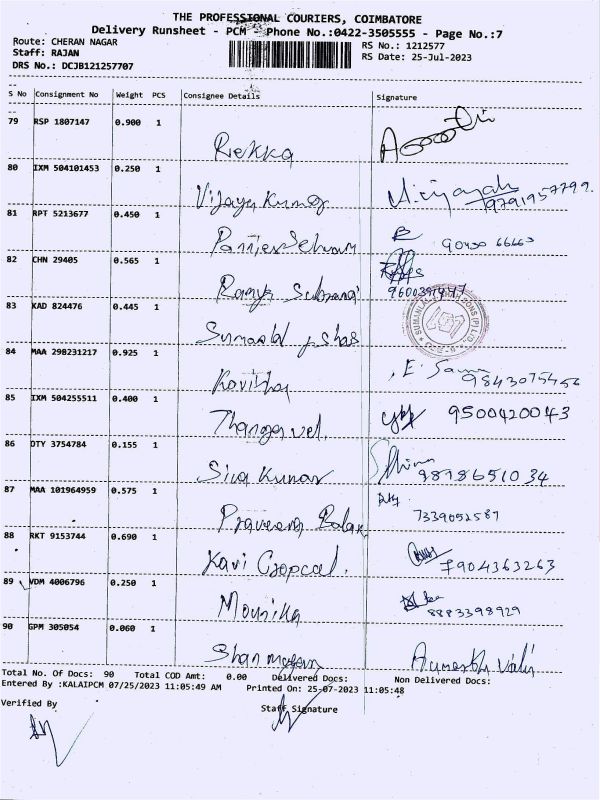 THE PROFESSIONAL COURIERS, COIMBATORE
Delivery Runsheet - PCM - Phone No.:0422-3505555 - Page No.:7
Route: CHERAN NAGAR RS No.: 1212577
Staff: RAJAN RS Date: 25-Jul-2023
DRS No.: DCJB121257707
S No Consignment No Weight PCS Consignee Details Signature
79 RSP 1807147 0.900 1
Rekka
80 IXM 504101453 0.250 1
Vijaya Kumar 9791957799.
81 RPT 5213677 0.450 1
90430 66663
82 CHN 29405 0.565 1
Ramya
83 KAD 824476 0.445 1
84 MAA 298231217 0.925 1
Kavitha 9843075456
85 IXM 504255511 0.400 1
Thangavel. 9500420043
86 OTY 3754784 0.155 1
Siva Kumar 9878651034
87 MAA 101964959 0.575 1
Praveena Balan 7339052587
88 RKT 9153744 0.690 1
Kavi Gopal. 7904363263
89 VDM 4006796 0.250 1
Mounika 8883398929
90 GPM 305054 0.060 1
Total No. Of Docs: 90 Total COD Amt: 0.00 Delivered Docs: Non Delivered Docs:
Entered By :KALAIPCM 07/25/2023 11:05:49 AM Printed On: 25-07-2023 11:05:48
Verified By Staff Signature